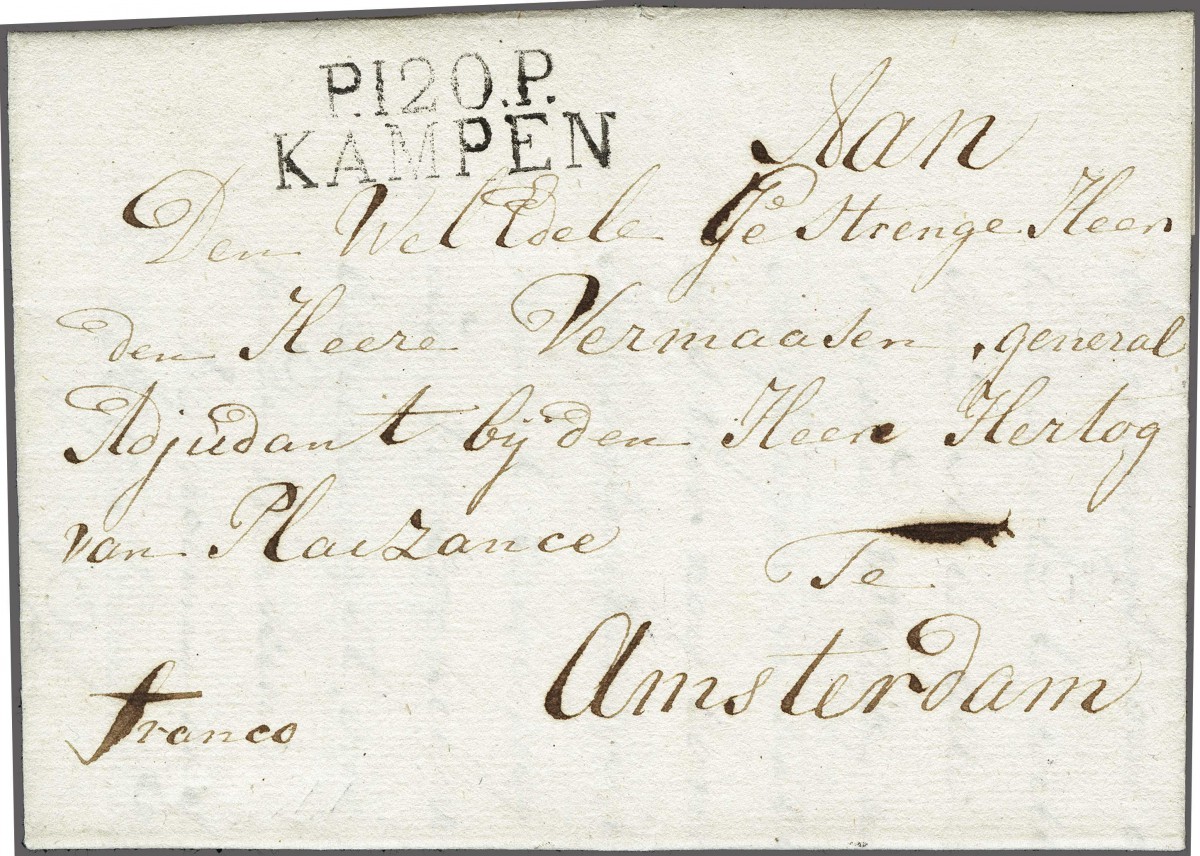 P.120.P.
KAMPEN
Aan
Den Wel Edele Gestrenge Heer
den Heere Vermaasen, general
Adjudant bij den Heere Hertog
van Plaizance
Te
Amsterdam
franco